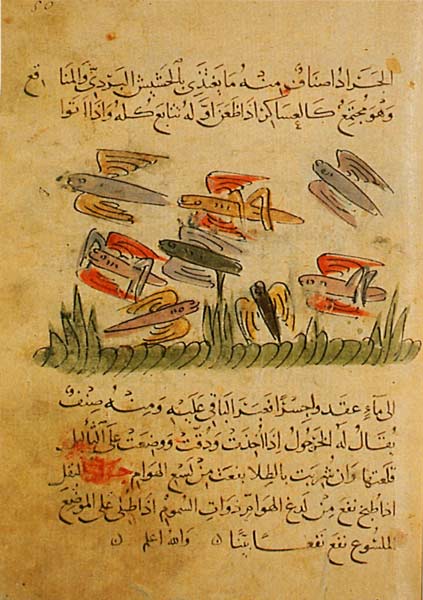 الجراد اصناف منه ما يغتذى بالحشيش البردي والمناقع
وهو مجتمع كالعساكر اذا ظعن اوله تتابع كله واذا اتوا
الى ماء عقدوا جسرا فعبر الباقي عليه ومنه صنف
يقال له الخرجول اذا اخذت ودقت ووضعت على الثاليل
قلعتها وان شربت بالطلا نفعت من لسع الهوام
اذا طبخ نفع من لدغ الهوام ذوات السموم اذا طلي على الموضع
الملسوع نفع نفعا بينا والله اعلم